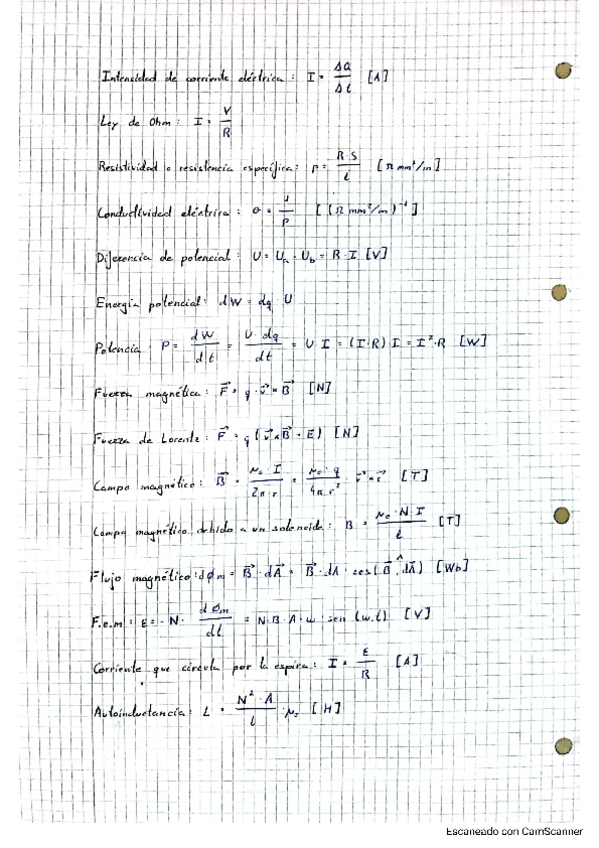 Intensidad de corriente eléctrica: I = ΔQ/Δt [A]
Ley de Ohm: I = V/R
Resistividad o resistencia específica: ρ = R·S/l [Ω mm²/m]
Conductividad eléctrica: σ = 1/ρ [(Ω mm²/m)⁻¹]
Diferencia de potencial: U = Ua - Ub = R·I [V]
Energía potencial: dW = dq · U
Potencia: P = dW/dt = U·dq/dt = U·I = (I·R)·I = I²·R [W]
Fuerza magnética: F⃗ = q·v⃗×B⃗ [N]
Fuerza de Lorentz: F⃗ = q(v⃗×B⃗ + E⃗) [N]
Campo magnético: B⃗ = μ₀·I/2π·r = μ₀·q/4π·r² · v⃗×r⃗ [T]
Campo magnético debido a un solenoide: B = μ₀·N·I/l [T]
Flujo magnético: dømm = B⃗·dA⃗ = B⃗·dA·cos(B⃗,dA⃗) [Wb]
F.e.m = E = -N· døm/dt = N·B·A·w·sen(w.t) [V]
Corriente que circula por la espira: I = E/R [A]
Autoinductancia: L = N²·A/l ·μ₀ [H]
Escaneado con CamScanner